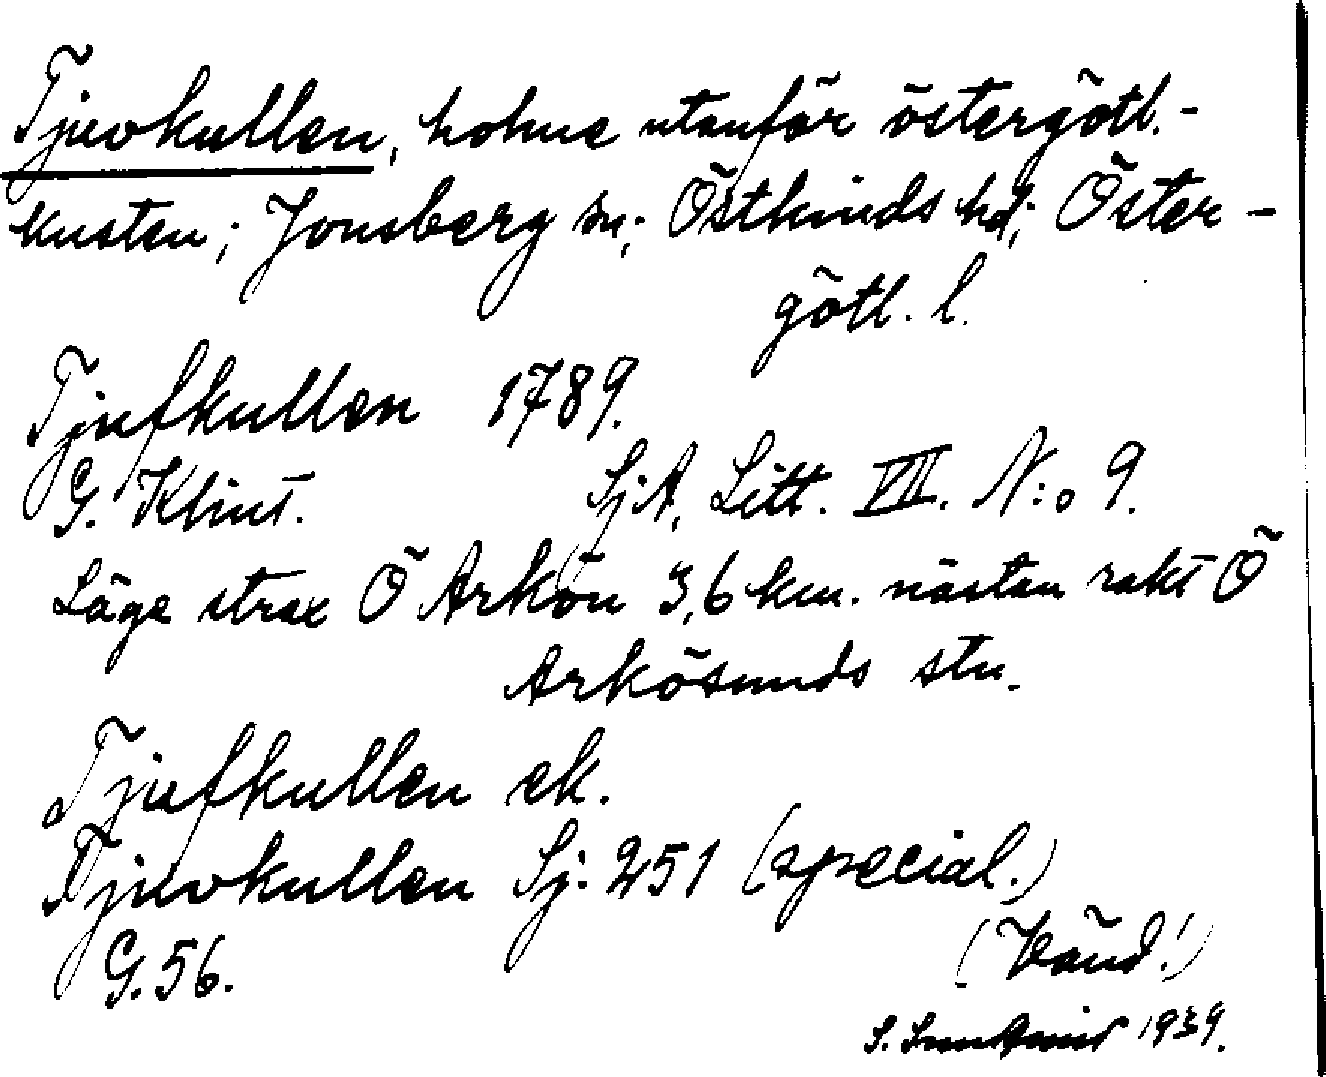 Tjuvkullen, holme utanför östergötl.-
kusten; Jonsberg sn; Östkinds hd; Öster-
götl. l.
Tjufkullen 1789.
G. Klint. SjA, Litt. VII. N:o 9.
Läge strax Ö Arkön 3,6 km. nästan rakt Ö
Arkösunds stn.
Tjufkullen ek.
Tjuvkullen Sj. 251 (special.)
G. 56. (Vänd!)
S. 1939.